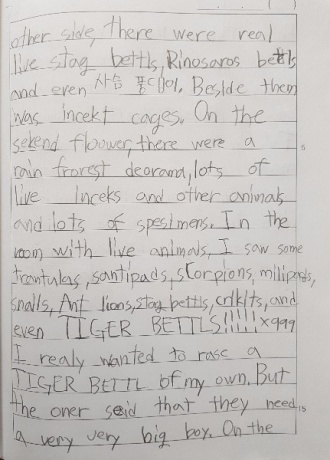 other side, there were real
live stag bettls, Rinosaros bettls
and even 사슴 풍뎅이. Beside them
was incekt cages. On the
sekend floower, there were a
rain frorest deorama, lots of
live inceks and other animals
and lots of spesimens. In the
room with live animals, I saw some
trantulas, santipads, storpions, millipads,
snails, Ant lions, stag bettls, crikits, and
even TIGER BETTLS!!!!!! x999
I realy wanted to rase a
TIGER BETTL of my own. But
the oner seid that they need
a very very big box. On the